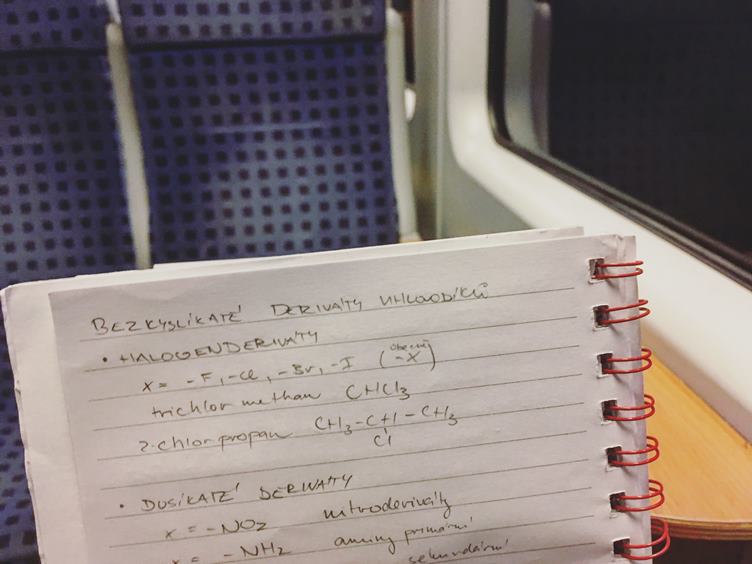 BEZKYSLÍKATÉ DERIVÁTY UHLOVODÍKŮ
• HALOGENDERIVÁTY
x = -F, -Cl, -Br, -I (obecně -X)
trichlor methan CHCl3
2-chlor propan CH3-CH-CH3
Cl
• DUSÍKATÉ DERIVÁTY
x = -NO2 nitroderiváty
x = -NH2 aminy primární
sekundární